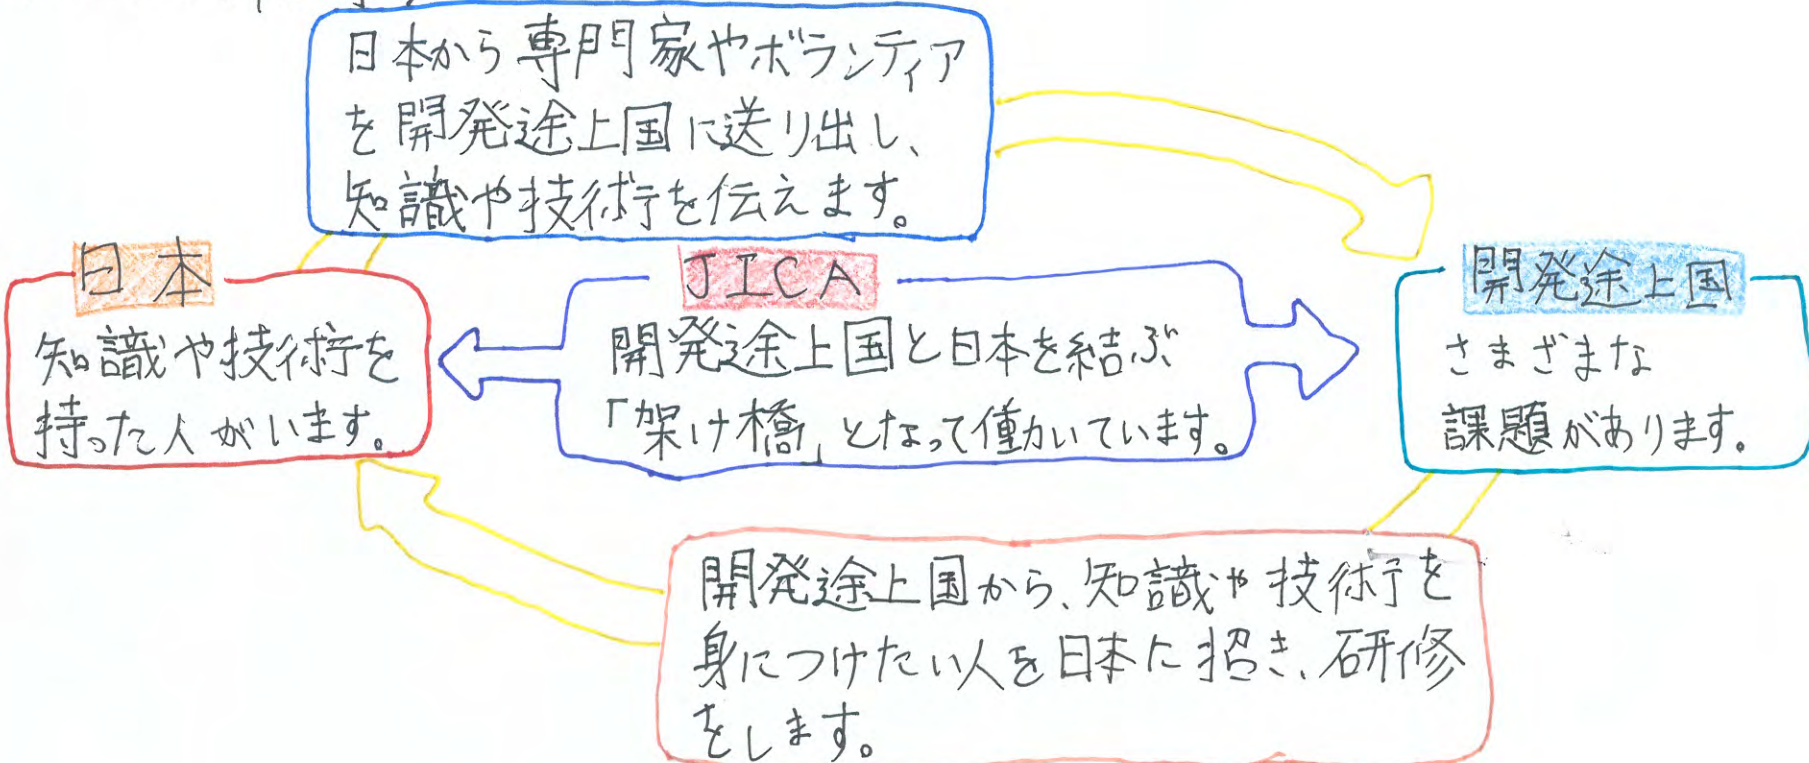 日本から専門家やボランティア
を開発途上国に送り出し、
知識や技術を伝えます。
日本
知識や技術を
持った人がいます。
JICA
開発途上国と日本を結ぶ
「架け橋」となって働いています。
開発途上国
さまざまな
課題があります。
開発途上国から、知識や技術を
身につけたい人を日本に招き、研修
をします。